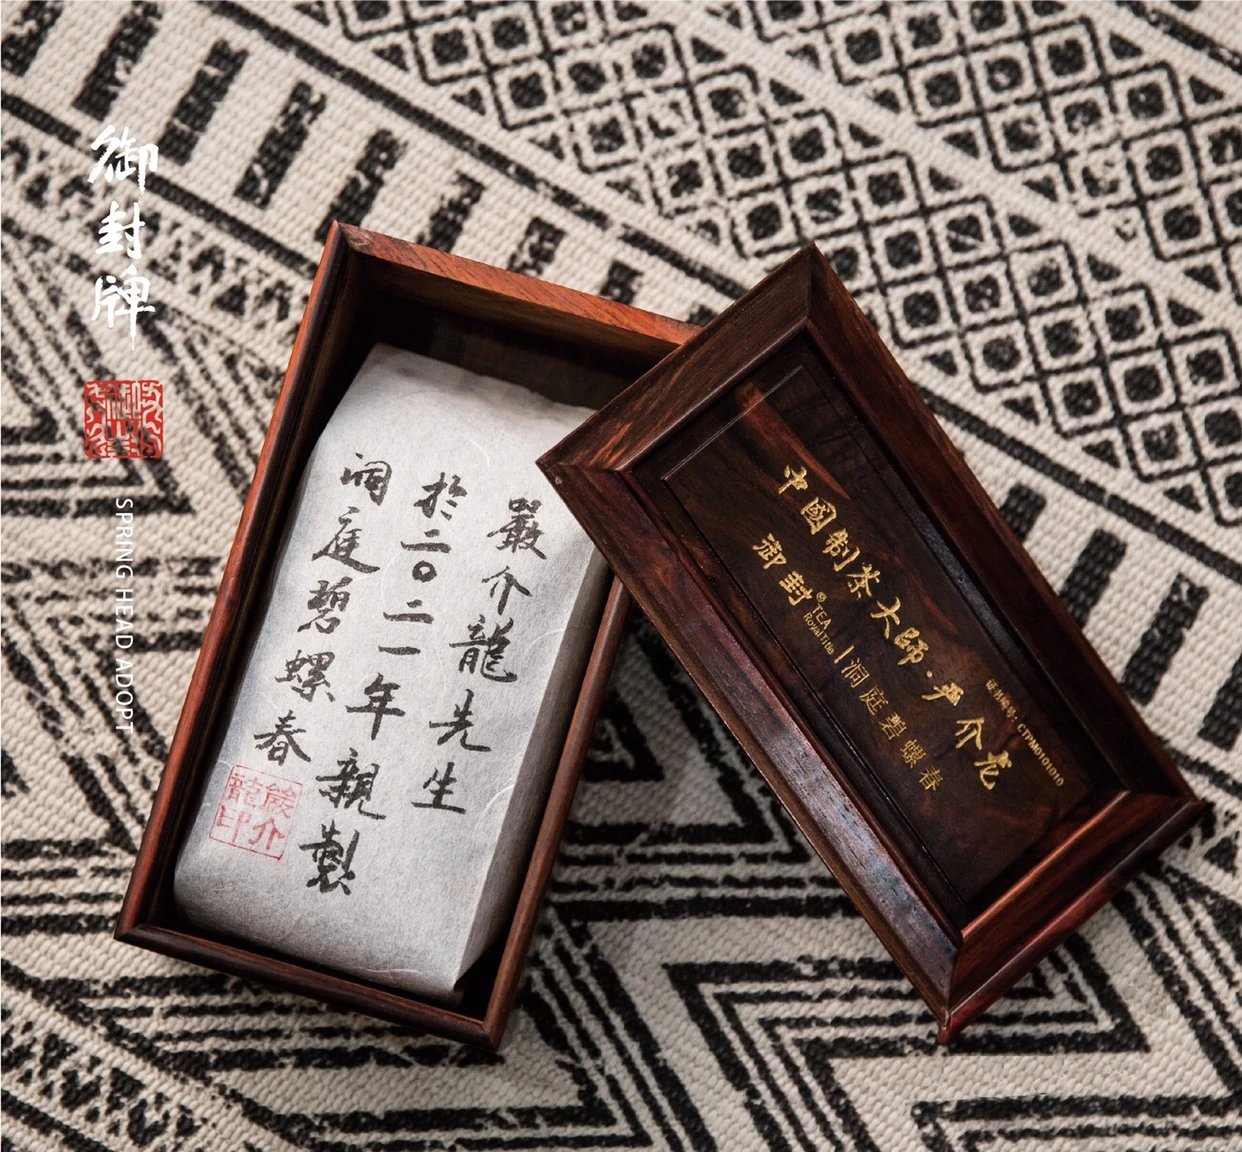 御封牌
SPRING HEAD ADOPT
嚴介龍先生
於二〇二一年親製
洞庭碧螺春
嚴介龍印
中國制茶大師·严介龙
证书编号：CTPM0101010
御封®TEA RoyalTitle|洞庭碧螺春